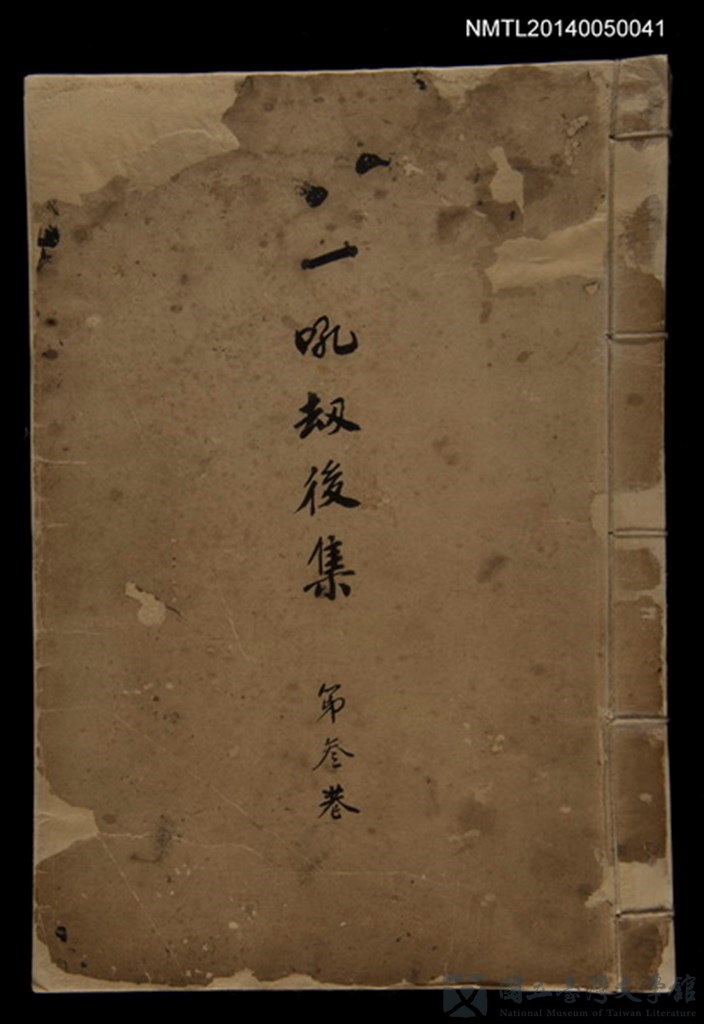 NMTL20140050041
一吼劫後集
第叁卷
國立臺灣文學館
National Museum of Taiwan Literature